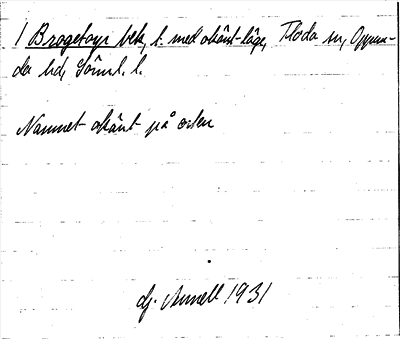 1 Brogetorp bek, l. med okänt läge, Floda sn, Oppun-
da hd, Sörml. l.
Namnet okänt på orten
Annell 1931